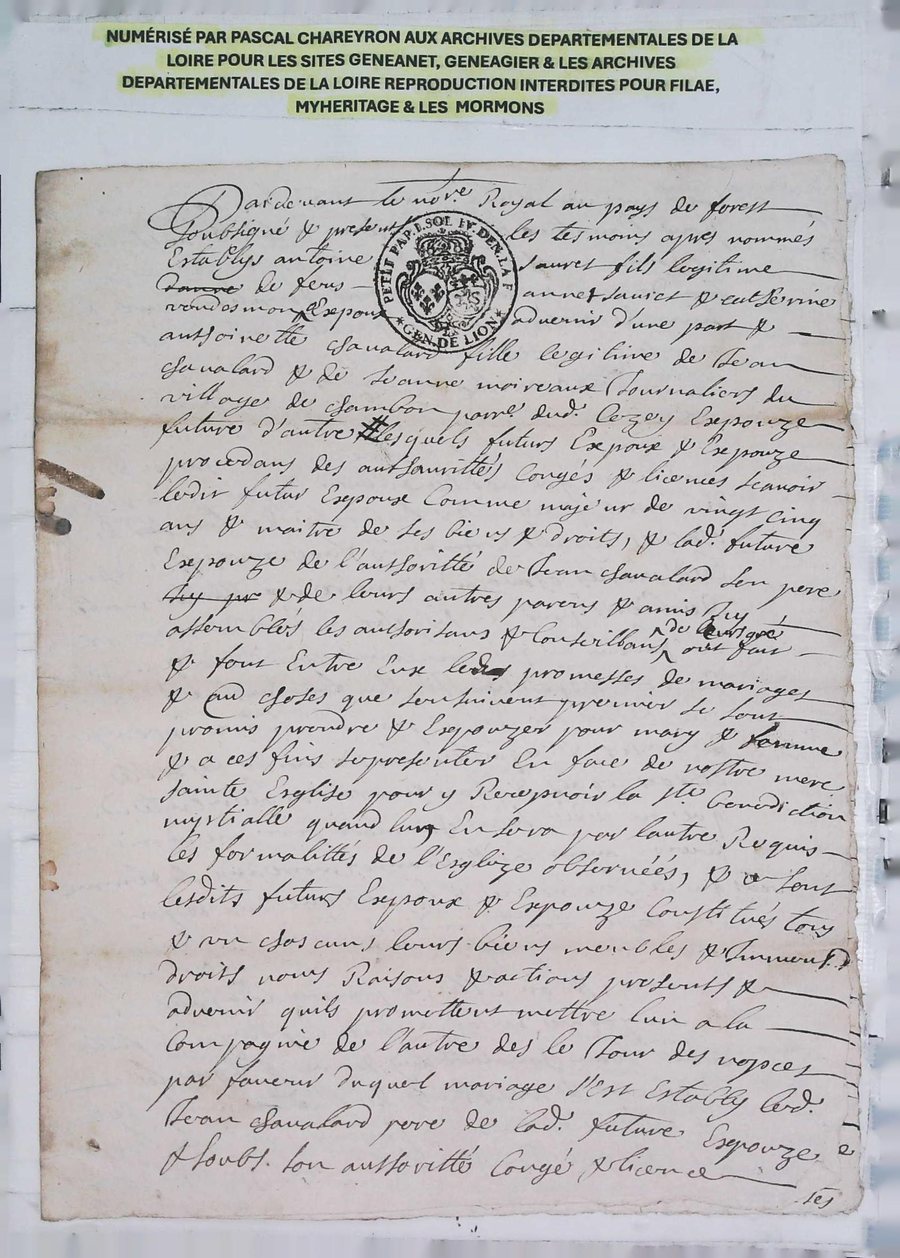 NUMÉRISÉ PAR PASCAL CHAREYRON AUX ARCHIVES DEPARTEMENTALES DE LA
LOIRE POUR LES SITES GENEANET, GENEAGIER & LES ARCHIVES
DEPARTEMENTALES DE LA LOIRE REPRODUCTION INTERDITES POUR FILAE,
MYHERITAGE & LES MORMONS
Pardevant le no.re Royal au pays de forest
Soubsigné & present les tesmoins apres nommés
Establys antoine sauret fils legitime
PETIT PAP. 1. SOL IV. DEN. LA F
GEN. DE LION
de feus annet sauret & catherine
Expoux advenir d'une part &
anthoinette chavalard fille legitime de Jean
chavalard & de Jeanne moireaux Journaliers du
village de chambon parr.e dud. Cezey Expouze
future d'autre # lesquels futurs Expoux & Expouze
procedans des authorittés Congés & licences scavoir
ledit futur Expoux Comme majeur de vingt cinq
ans & maitre de ses biens & droits, & lad. future
Expouze de l'authoritté de Jean chavalard son pere
& de leurs autres parens & amis Icy
assemblés les authorisans & Conseillans de leur gré ont fait
& font Entre Eux les promesses de mariages
& choses que sensuivent premier se sont
promis prendre & Expouzer pour mary & femme
& a ces fins se presenter En face de nostre mere
sainte Esglise pour y Recepvoir la s.te benediction
nuptialle quand lun En sera par lautre Requis
les formalittés de l'Esglize observéés, & ce sont
lesdits futurs Expoux & Expouze Constitués tous
& un chascuns leurs biens meubles & Immeub.
droits noms Raisons & actions presents &
advenir quils promettent mettre lun a la
Compagnie de l'autre des le Jour des nopces
par faveur duquel mariage s'est Estably led.
Jean chavalard pere de lad. future Expouze
& soubs. son authoritté Congé & licence